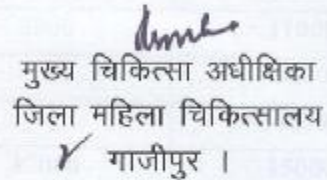 मुख्य चिकित्सा अधीक्षिका
जिला महिला चिकित्सालय
गाजीपुर ।